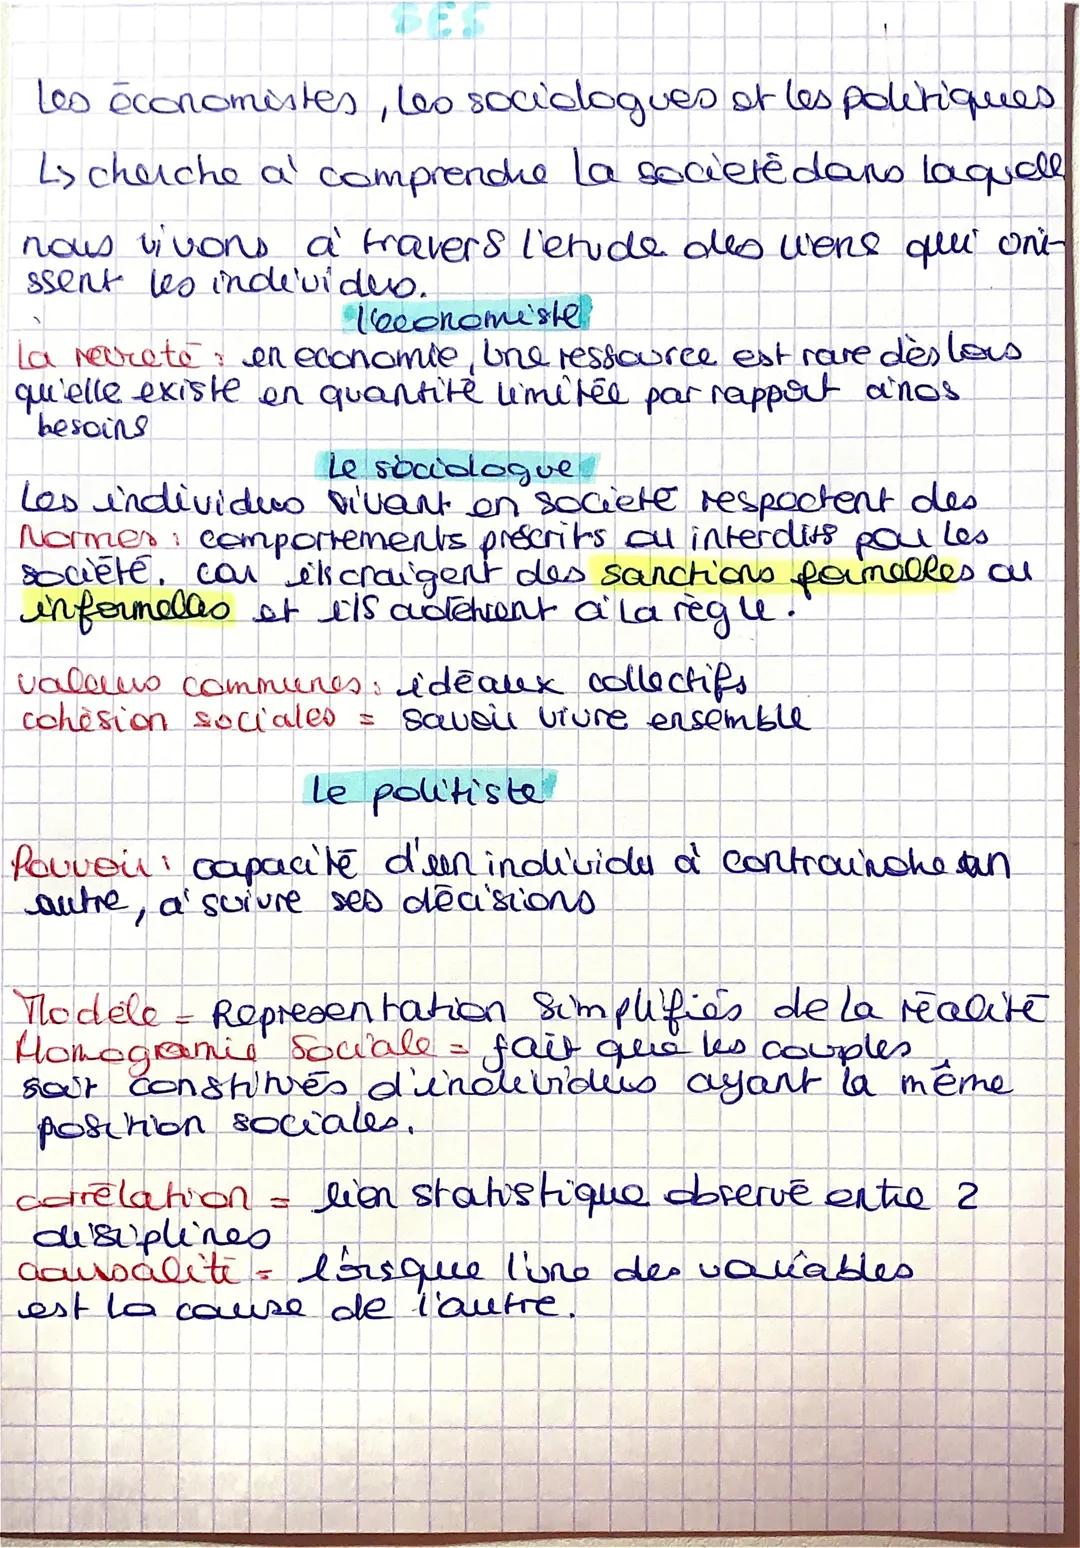 SES
Les économistes, les sociologues et les politiques
↳ cherche à comprendre la societé dans laquelle
nous vivons à travers l'etude des liens qui oni-
ssent les individus.
l'économiste
La rareté : en economie, une ressource est rare dès lors
qu'elle existe en quantité limitée par rapport à nos
besoins
Le sociologue
Les individus vivant en societé respectent des
Normes : comportements préscrits ou interdits par les
société. car ils craigent des sanctions formelles ou
informelles et ils adhèrent à la règle.
valeurs communes : idéaux collectifs
cohésion sociales = savoir vivre ensemble
Le politiste
Pouvoir : capacité d'un individu à contraindre un
autre, à suivre ses décisions
Modèle = Representation simplifiés de la réalité
Homogamie Sociale = fait que les couples
soit constitués d'individus ayant la même
position sociales.
corrélation = lien statistique observé entre 2
disiplines
causalité = lorsque l'une des variables
est la cause de l'autre.